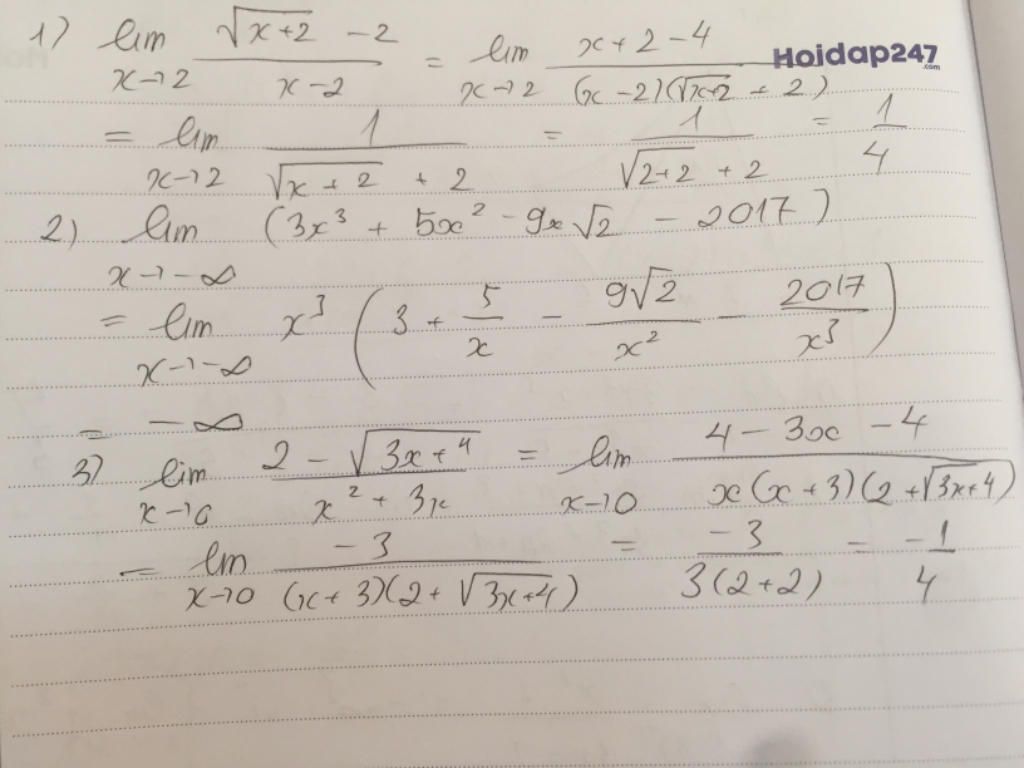 1) lim x→2 (√(x+2) - 2)/(x-2) = lim x→2 (x+2-4)/((x-2)(√(x+2) + 2))
Hoidap247
.com
= lim x→2 1/(√(x+2) + 2) = 1/(√(2+2) + 2) = 1/4
2) lim x→-∞ (3x³ + 5x² - 9x√2 - 2017)
= lim x→-∞ x³ (3 + 5/x - 9√2/x² - 2017/x³)
= -∞
3) lim x→0 (2 - √(3x+4))/(x² + 3x) = lim x→0 (4 - 3x - 4)/(x(x+3)(2+√(3x+4)))
= lim x→0 -3/((x+3)(2+√(3x+4))) = -3/(3(2+2)) = -1/4